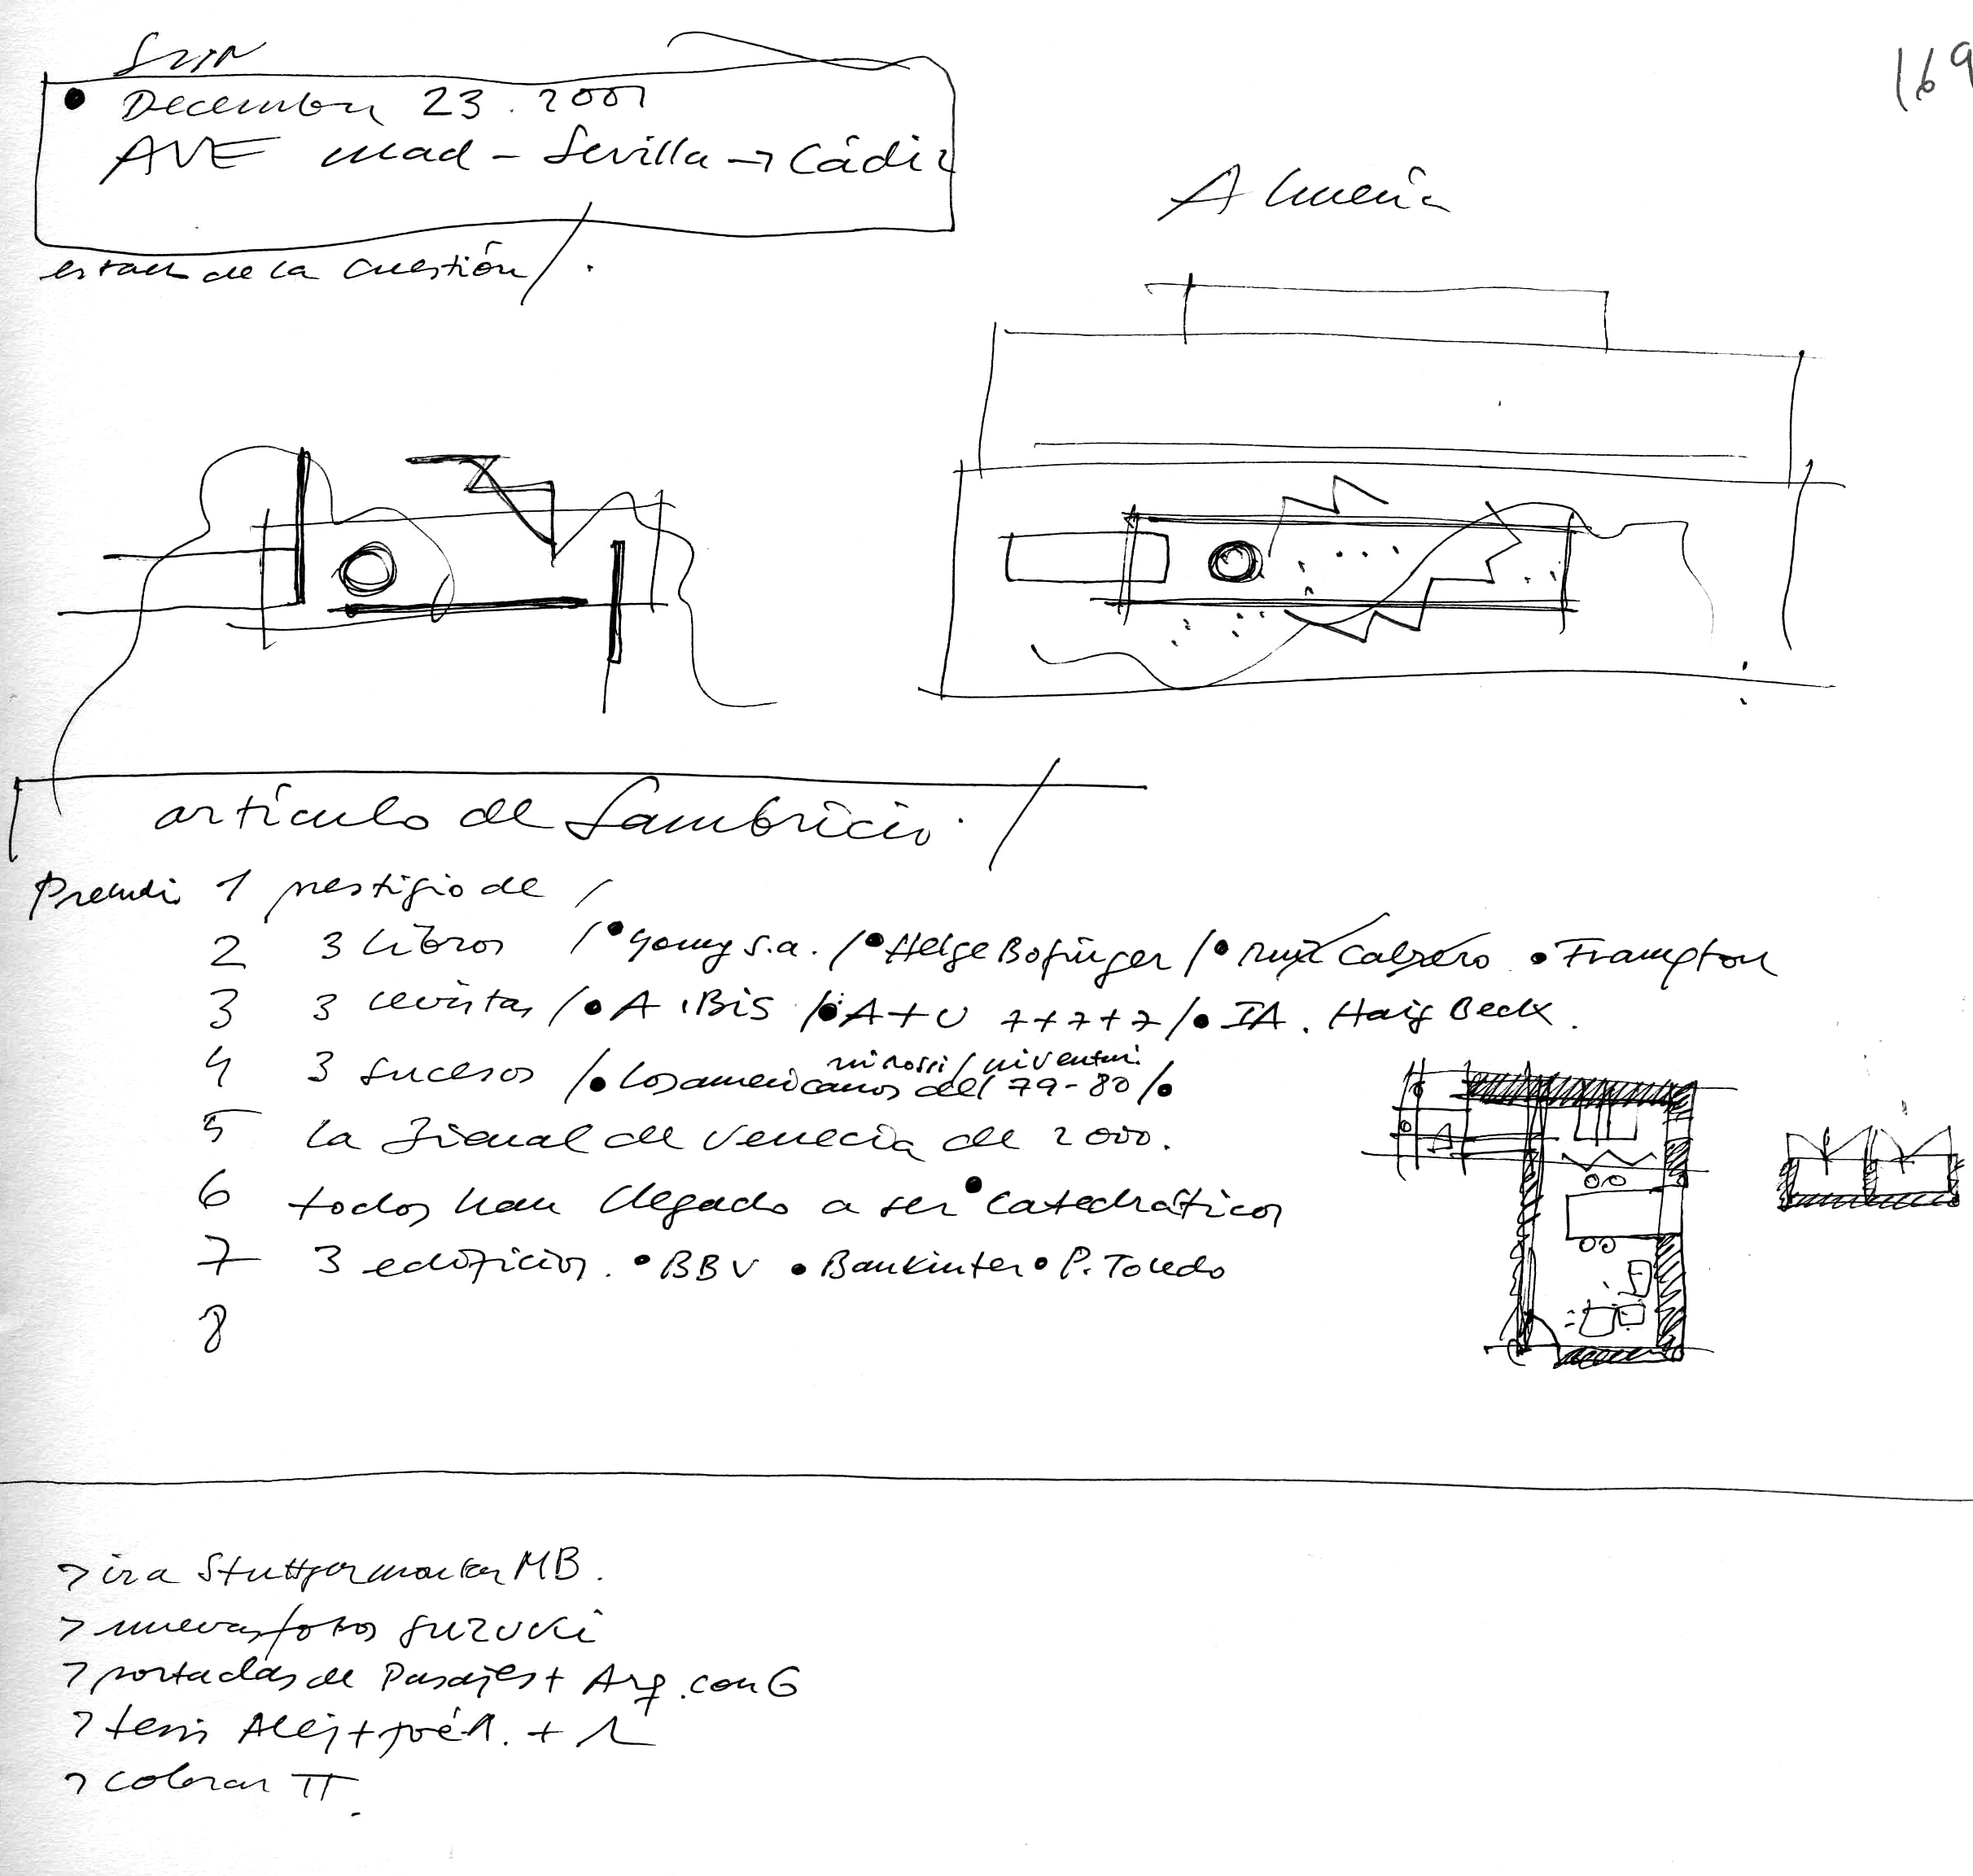 SUN
169
December 23. 2001
AVE Mad - Sevilla → Cádiz
Almería
estado de la cuestión /.
artículo de Sambricio. /
1 prestigio de /
2 3 libros / • Yomy S.a. / • Helge Bofinger / • Ruiz Cabrero • Frampton
3 3 revistas / • A, BIS / • A+U 7+7+7 / • IA. Haig Beck.
4 3 sucesos / • los americanos del 79-80 / •
5 la Bienal de Venecia de 2000.
6 todos han llegado a ser • catedráticos
7 3 edificios. • BBV • Bankinter • P. Toledo
8
> ir a Stuttgart MB.
> nuevas fotos Suzuki
> portadas de Pasajes + Arq. con G
> tesis Alej +
> colorear π.